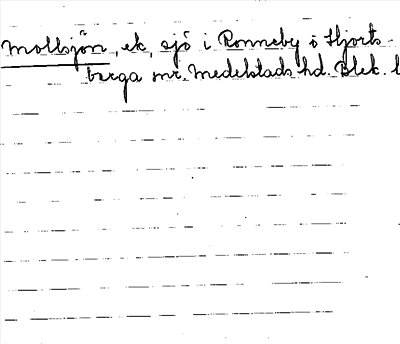 Mollsjön, ek, sjö i Ronneby o Hjorts-
berga snr. Medelstads hd. Blek. l